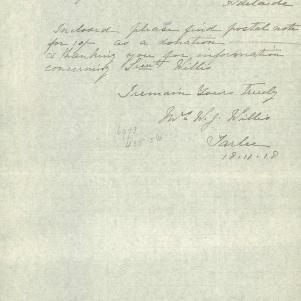 Adelaide
Inclosed please find postal note
for 10/- as a donation
& thanking you for information
concerning Lieutt Willis
I remain Yours truly
Mrs W. J. Willis
Tarlee
18.11.18